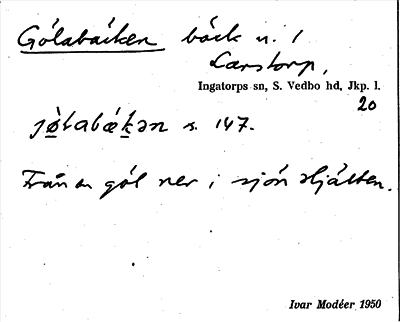 Gölabäcken bäck n. /
Larstorp,
Ingatorps sn, S. Vedbo hd, Jkp. l.
20
jø̀labækən s. 147.
Från en göl ner i sjön Hjälten.
Ivar Modéer 1950